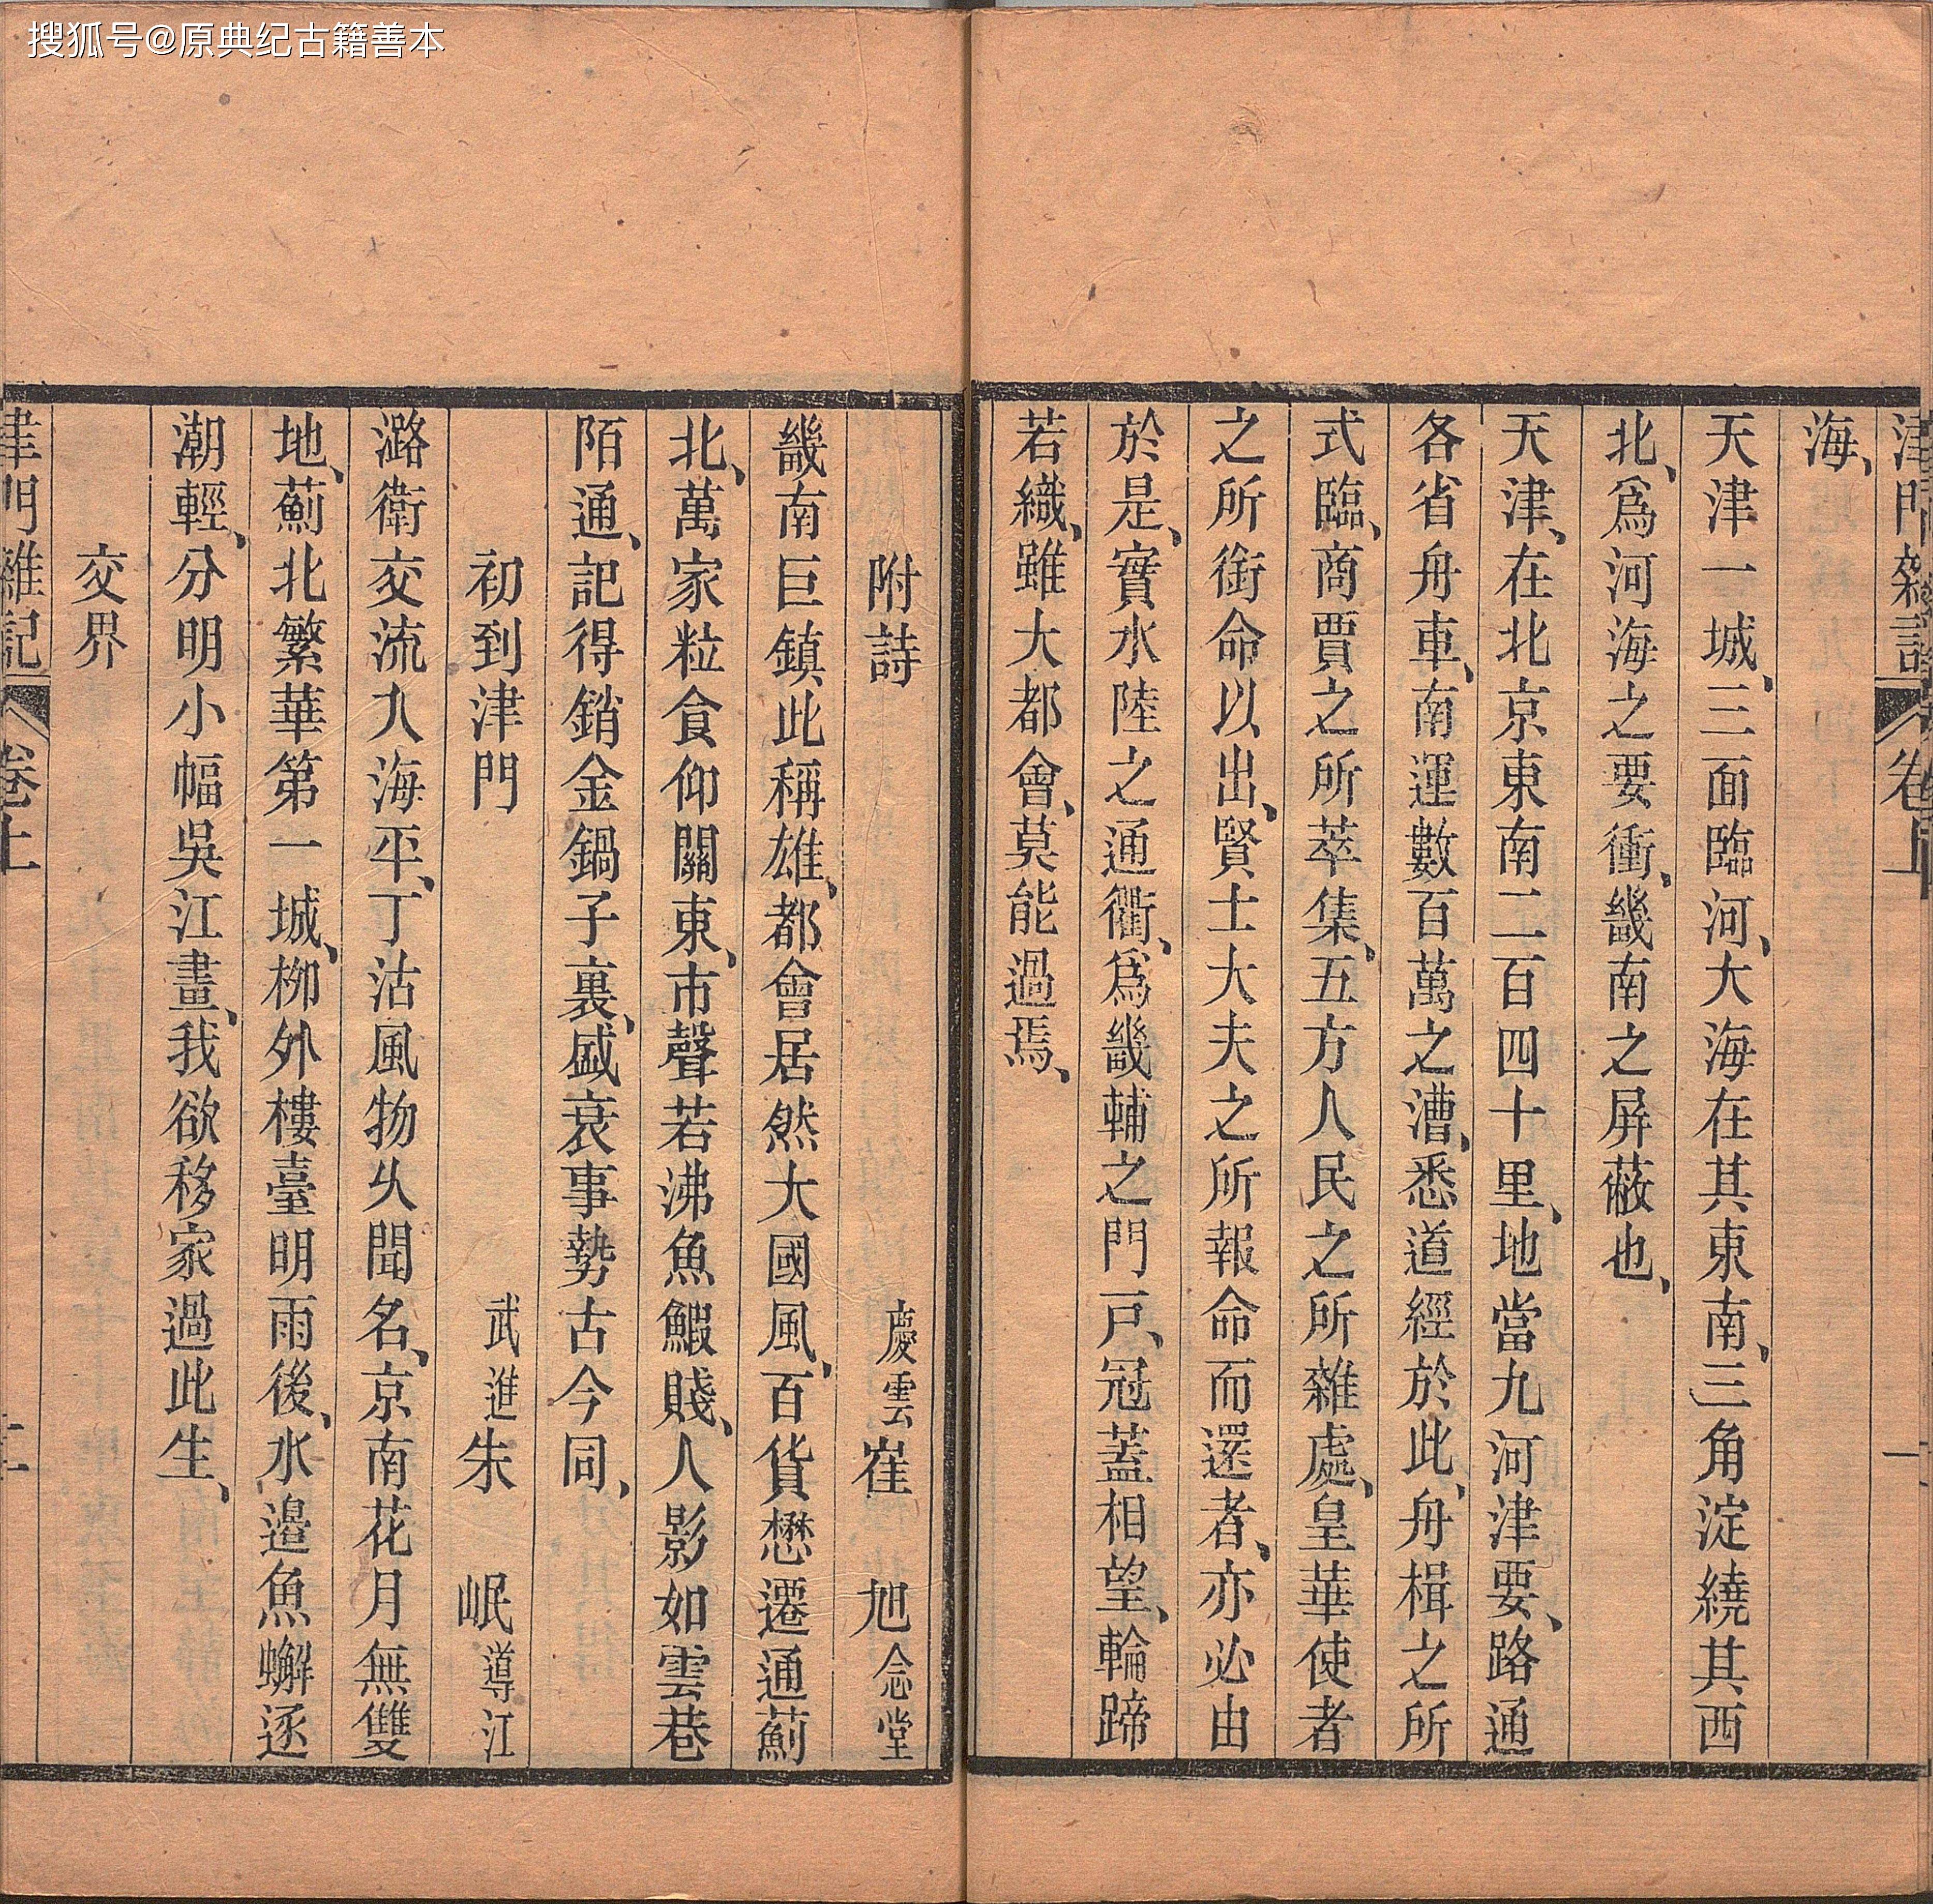 搜狐号@原典纪古籍善本
津門雜記 卷上 一
海、
天津一城、三面臨河、大海在其東南、三角淀繞其西
北、爲河海之要衝、畿南之屏蔽也、
天津、在北京東南二百四十里、地當九河津要、路通
各省舟車、南運數百萬之漕、悉道經於此、舟楫之所
式臨、商賈之所萃集、五方人民之所雜處、皇華使者
之所銜命以出、賢士大夫之所報命而還者、亦必由
於是、實水陸之通衢、爲畿輔之門戸、冠蓋相望、輪蹄
若織、雖大都會、莫能過焉、
附詩 慶雲崔旭念堂
畿南巨鎮此稱雄、都會居然大國風、百貨懋遷通薊
北、萬家粒食仰關東、市聲若沸魚鰕賤、人影如雲巷
陌通、記得銷金鍋子裏、盛衰事勢古今同、
初到津門 武進朱岷導江
潞衛交流入海平、丁沽風物久聞名、京南花月無雙
地、薊北繁華第一城、栁外樓臺明雨後、水邉魚蠏逐
潮輕、分明小幅吳江畫、我欲移家過此生、
交界
津門雜記 卷上 二